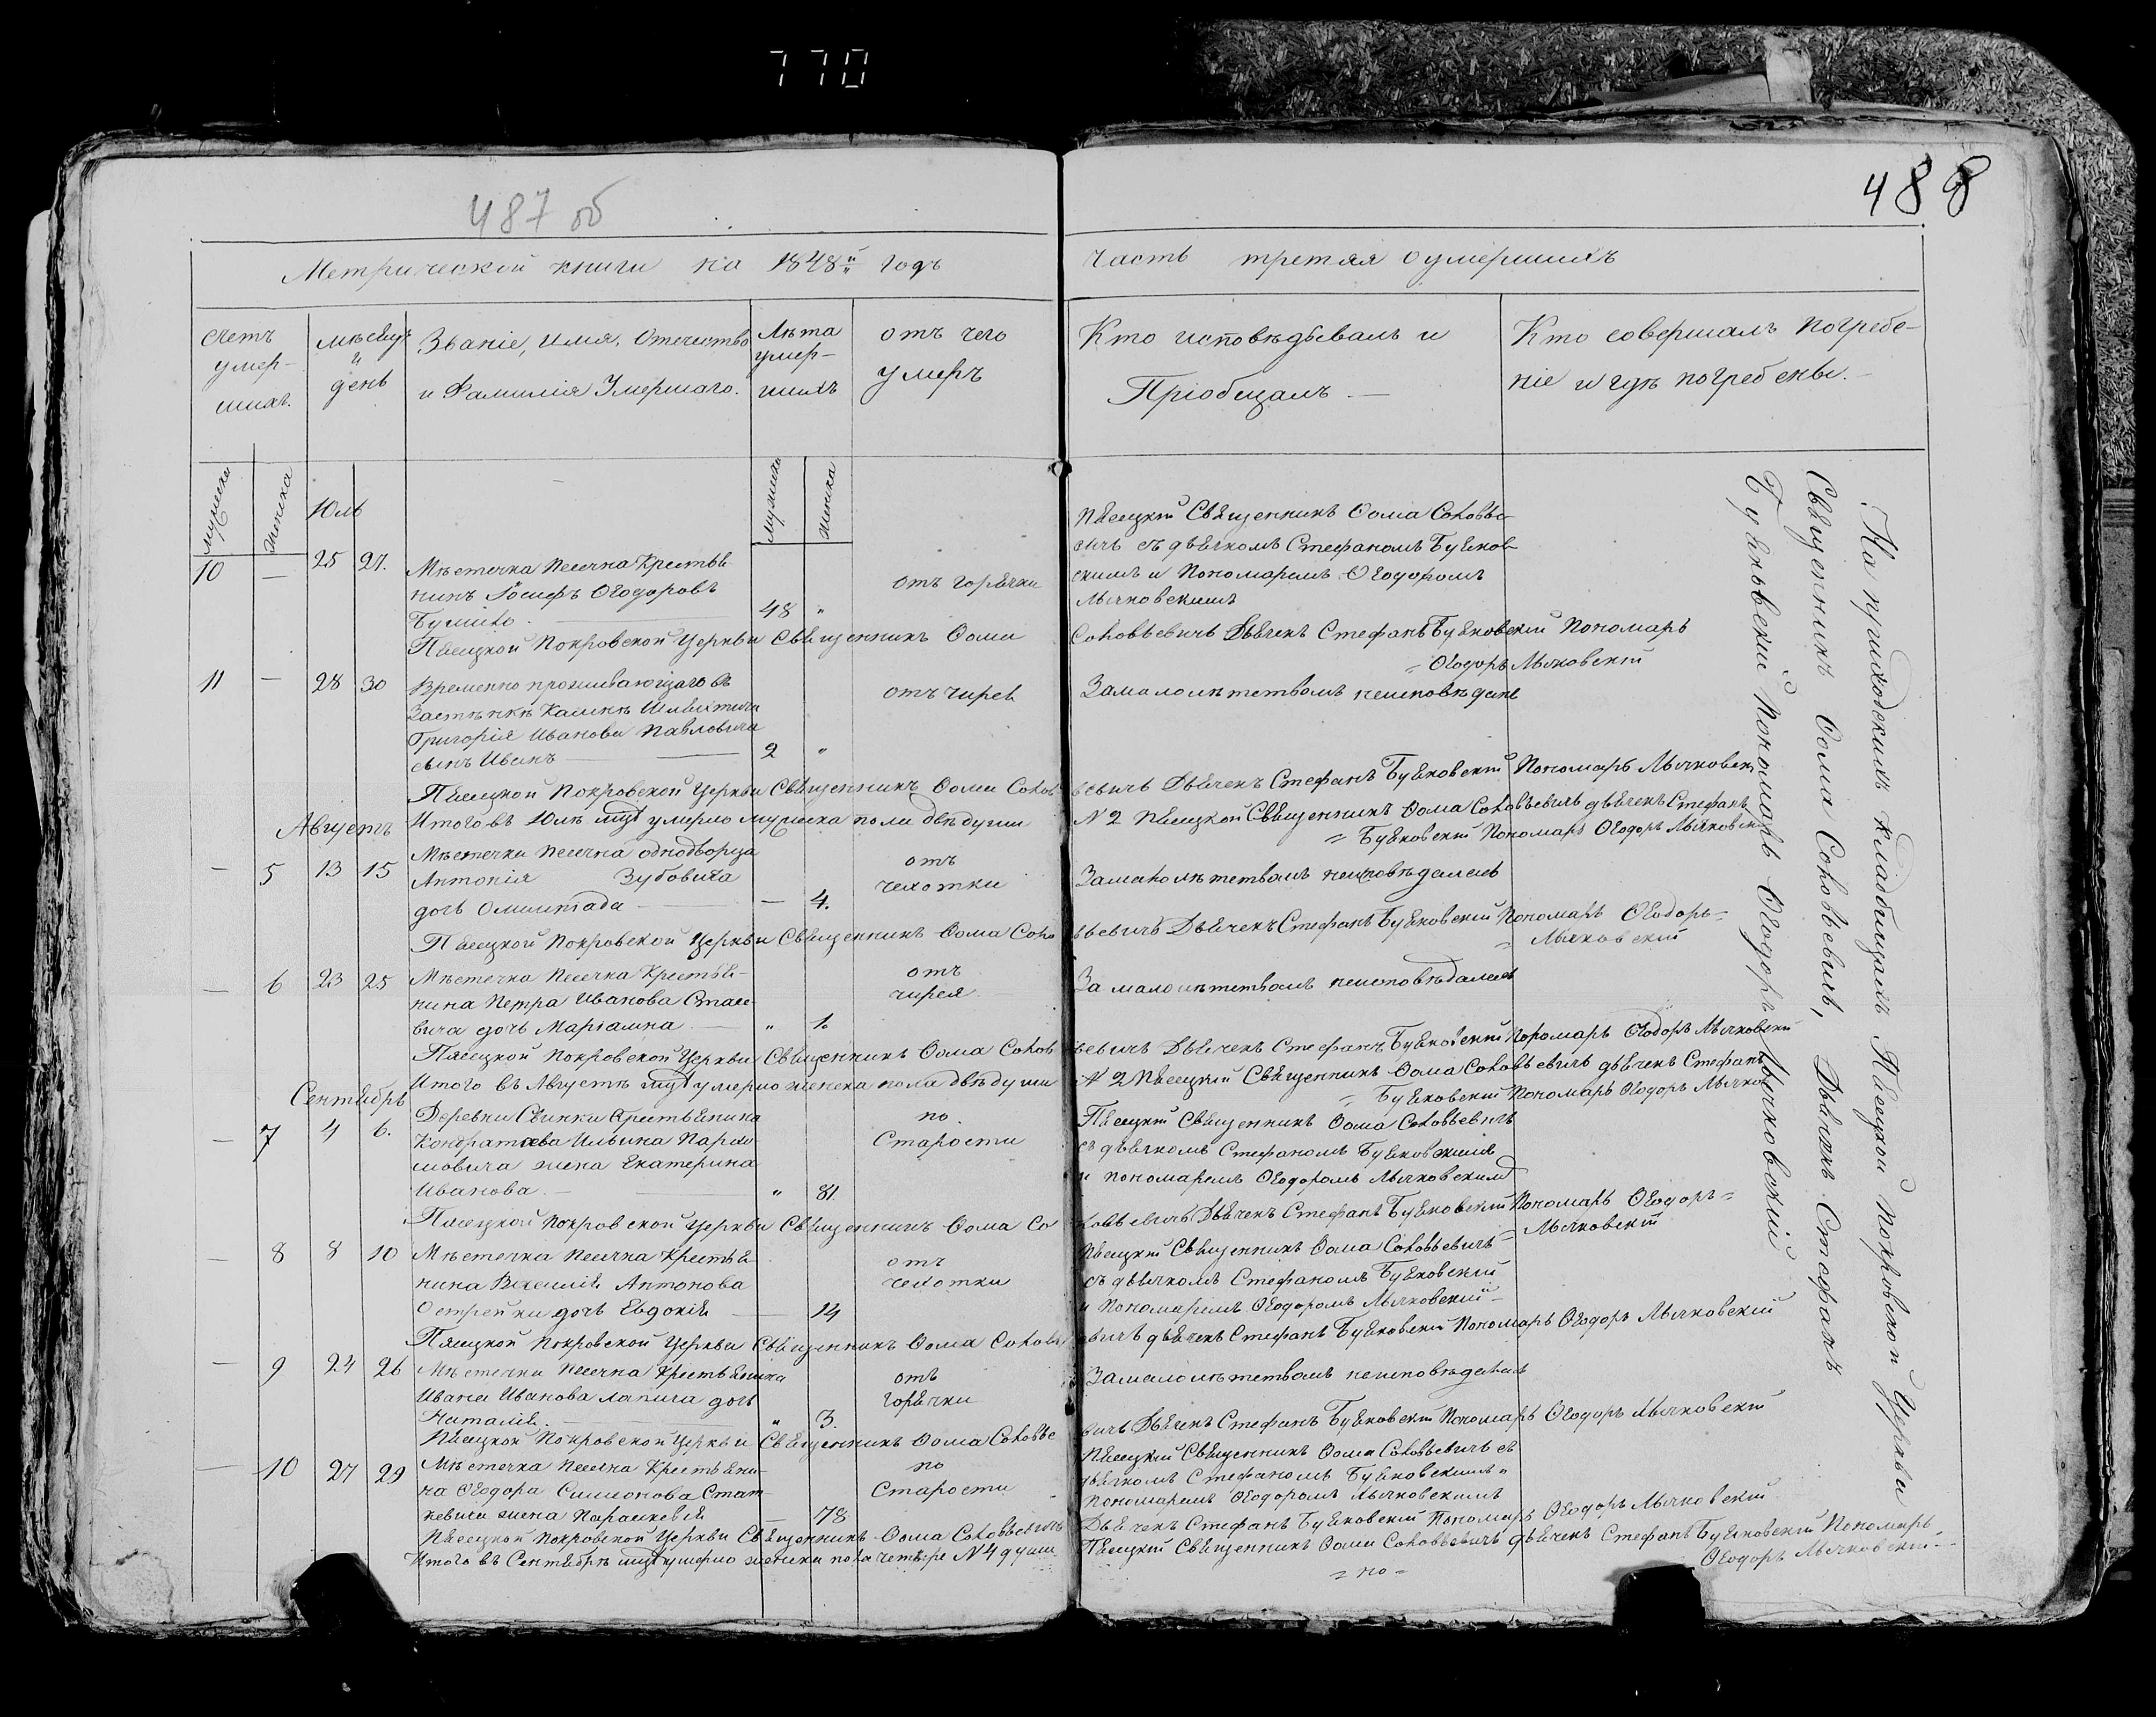 770
487 об
488
Метрической книги на 1848й годъ
часть третяя о умершихъ
счетъ умер-
шихъ.
мѣсецъ
и
день
Званіе, имя, Отечество
и Фамилія Умершаго.
Лѣта
умер-
шихъ
отъ чего
умеръ
Кто исповѣдывалъ и
Пріобщалъ. —
Кто совершалъ погребе-
ніе и гдѣ погребены. —
мужеска
женска
мужеска
женска
Юль
10 — 25 27.
Мѣстечка Песечна Крестья-
нинъ Іосифъ Ѳеодоровъ
Бушило
48 "
отъ горячки
Пясецкій Священникъ Ѳома Соловье-
вичъ съ дьячкомъ Стефаномъ Буяков-
скимъ и Пономаремъ Ѳеодоромъ
Лычковскимъ
Пясецкой Покровской Церкви Священникъ Ѳома Соловьевичъ Дьячекъ Стефанъ Буяковскій Пономарь
= Ѳеодоръ Лычковскій
11 — 28 30
Временно проживающаго въ
Застѣнкѣ Камнѣ
Григорія Иванова Павловича
сынъ Иванъ —
2 "
отъ чирея
За малолѣтствомъ неисповѣданъ
Пясецкой Покровской Церкви Священникъ Ѳома Соловьевичъ Дьячекъ Стефанъ Буяковскій Пономарь Лычковск
Итого въ Юлѣ мцѣ умерло мужеска пола двѣ души
№ 2 Пясецкой Священникъ Ѳома Соловьевичъ дьячекъ Стефанъ
= Буяковскій Пономарь Ѳеодоръ Лычковск
Августъ
— 5 13 15
Мѣстечка Песечна однодворца
Антонія Зубовича
дочь —
— 4.
отъ
чехотки
За малолѣтствомъ неисповѣдалась
Пясецкой Покровской Церкви Священникъ Ѳома Соловьевичъ Дьячекъ Стефанъ Буяковскій Пономарь Ѳеодоръ =
= Лычковскій
— 6 23 25
Мѣстечка Песечна Крестья-
нина Петра Иванова Стасе-
вича дочь Маріанна —
" 1.
отъ
чирея
За малолѣтствомъ неисповѣдалась
Пясецкой Покровской Церкви Священникъ Ѳома Соловьевичъ Дьячекъ Стефанъ Буяковскій Пономарь Ѳеодоръ Лычковскій
Итого въ Августѣ мцѣ умерло женска пола двѣ души
№ 2 Пясецкій Священникъ Ѳома Соловьевичъ дьячекъ Стефанъ
= Буяковскій Пономарь Ѳеодоръ Лычков
Сентябрь
— 7 4 6.
Деревни Свинки Крестьянина
Кондратіева Ильина Пархи-
мовича жена Екатерина
Иванова. —
" 81
по
Старости
Пясецкій Священникъ Ѳома Соловьевичъ
съ дьячкомъ Стефаномъ Буяковскимъ
и пономаремъ Ѳеодоромъ Лычковскимъ
Пясецкой Покровской Церкви Священникъ Ѳома Соловьевичъ Дьячекъ Стефанъ Буяковскій Пономарь Ѳеодоръ =
= Лычковскій
— 8 8 10
Мѣстечка Песечна Крестья-
нина Антонова
Острейки дочь Евдокія —
14
отъ
чехотки
Пясецкій Священникъ Ѳома Соловьевичъ
съ дьячкомъ Стефаномъ Буяковскій
и Пономаремъ Ѳеодоромъ Лычковскій
Пясецкой Покровской Церкви Священникъ Ѳома Соловьевичъ дьячекъ Стефанъ Буяковскій Пономарь Ѳеодоръ Лычковскій
— 9 24 26
Мѣстечка Песечна Крестьянина
Ивана Иванова Лапича дочь
Наталія. —
" 3.
отъ
горячки
За малолѣтствомъ неисповѣдалась
Пясецкой Покровской Церкви Священникъ Ѳома Соловьевичъ Дьячекъ Стефанъ Буяковскій Пономарь Ѳеодоръ Лычковскій
— 10 27 29
Мѣстечка Песечна Крестьяни-
на Ѳеодора Симионова Стат-
кевича жена Параскевія
— 78
по
Старости
Пясецкій Священникъ Ѳома Соловьевичъ съ
дьячкомъ Стефаномъ Буяковскимъ и
пономаремъ Ѳеодоромъ Лычковскимъ
Пясецкой Покровской Церкви Священникъ Ѳома Соловьевичъ Дьячекъ Стефанъ Буяковскій Пономарь Ѳеодоръ Лычковскій
Итого въ Сентябрѣ мцѣ умерло женска пола четыре № 4 души
Пясецкій Священникъ Ѳома Соловьевичъ дьячекъ Стефанъ Буяковскій Пономарь
Ѳеодоръ Лычковскій —
= по =
На приходскихъ кладбищахъ Пясецкой Покровской Церкви
Священникъ Ѳома Соловьевичъ, Дьячекъ Стефанъ
Буяковскій Пономарь Ѳеодоръ Лычковскій